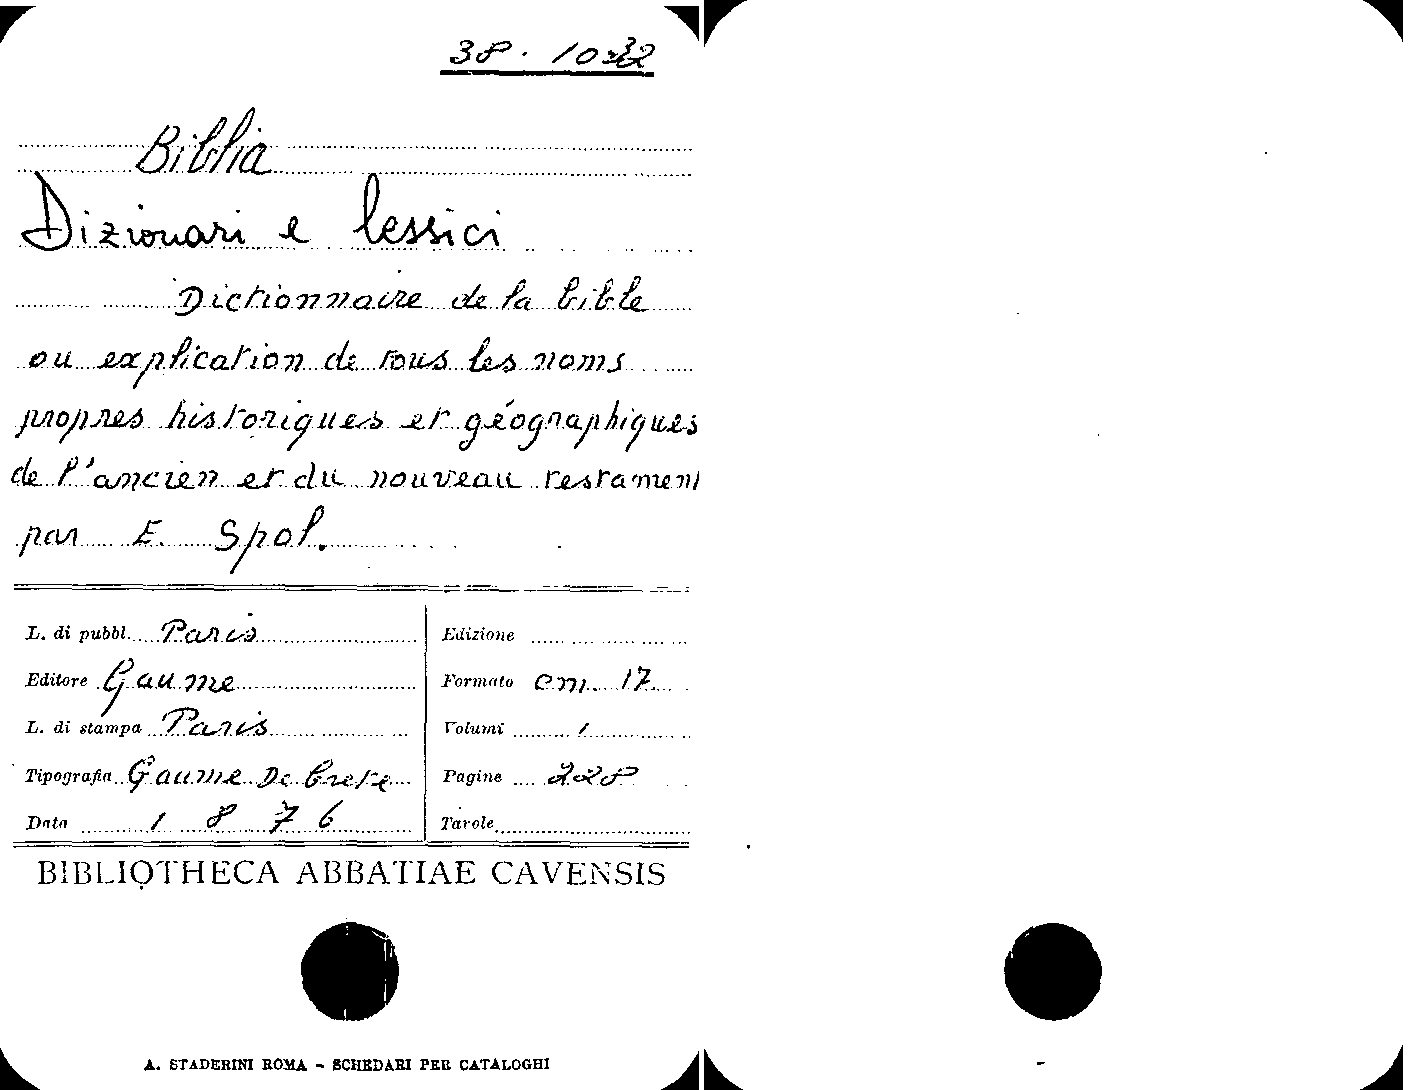 38 · 1032
Biblia
Dizionari e lessici
Dictionnaire de la bible
ou explication de tous les noms
propres historiques et géographiques
de l'ancien et du nouveau testament
par E. Spol.
L. di pubbl. Paris
Editore Gaume
L. di stampa Paris
Tipografia Gaume De
Data 1 8 7 6
Edizione
Formato cm. 17
Volumi 1
Pagine 228
Tavole
BIBLIOTHECA ABBATIAE CAVENSIS
A. STADERINI ROMA - SCHEDARI PER CATALOGHI